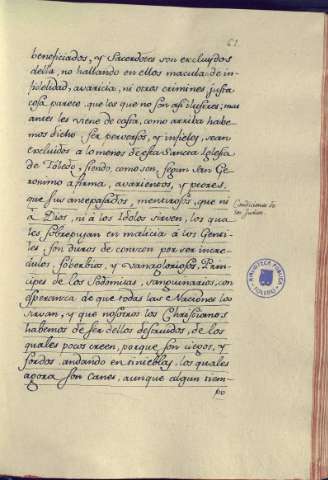 61
beneficiados, y Sacerdotes son excluydos
della, no hallando en ellos macula de in-
fidelidad, avaricia, ni otros crimines justa
cosa parece, que los que no son asi ilustres; mas
antes les viene de casta, como arriba habe-
mos dicho, ser perversos, y infieles, sean
excluidos a lo menos de esta Sancta Iglesia
de Toledo, siendo, como son, segun San Ge-
ronimo afirma, avarientos, y peores,
que sus antepasados, mentirosos, que ni
à Dios, ni à los Idolos sirven, los qua
les sobrepujan en malicia à los Genti-
les, son duros de cerviz por ser incre-
dulos, soberbios, y vanagloriosos, Prin-
cipes de los Sodomitas, sanguinarios, con
esperanza de que todas las Naciones los
sirvan, y que nosotros los Christianos
habemos de ser dellos destruidos, de los
quales pocos creen, porque son ciegos, y
sordos, andando en tinieblas, los quales
agora son Canes, aunque algun tiem-
po
Condiciones de
los Judios.
BIBLIOTECA PUBLICA
TOLEDO